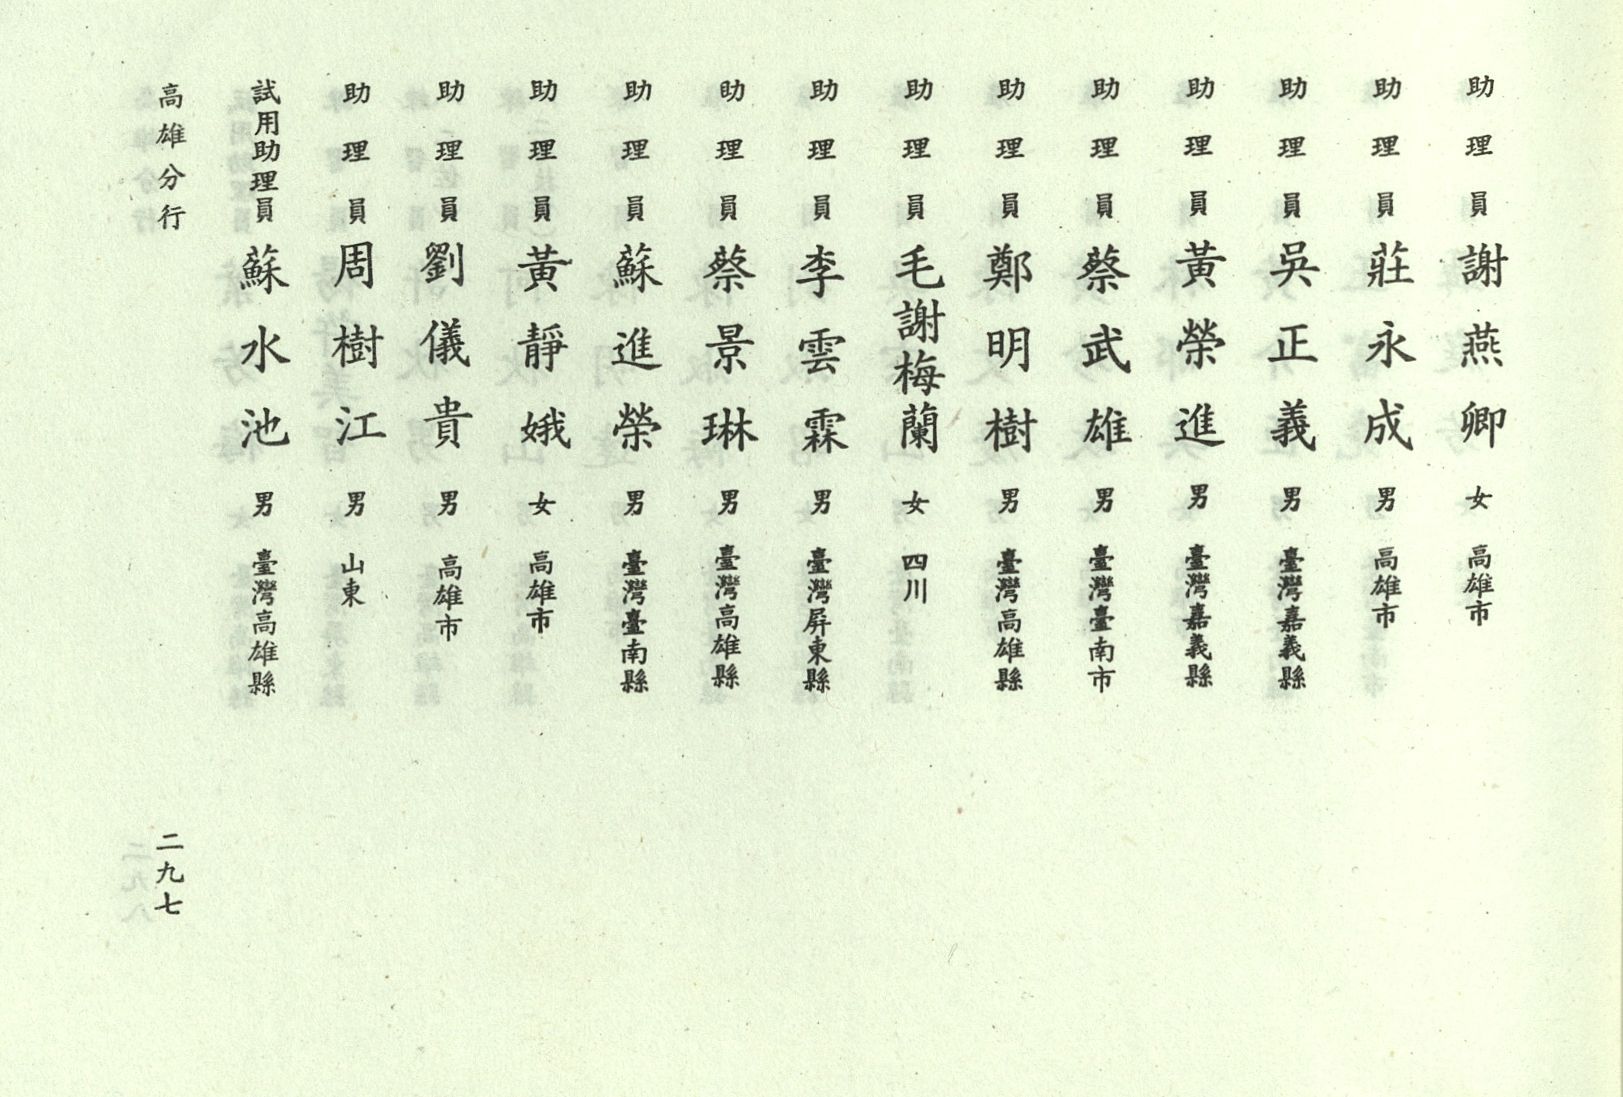 助理員 謝燕卿 女 高雄市
助理員 莊永成 男 高雄市
助理員 吳正義 男 臺灣嘉義縣
助理員 黃榮進 男 臺灣嘉義縣
助理員 蔡武雄 男 臺灣臺南市
助理員 鄭明樹 男 臺灣高雄縣
助理員 毛謝梅蘭 女 四川
助理員 李雲霖 男 臺灣屏東縣
助理員 蔡景琳 男 臺灣高雄縣
助理員 蘇進榮 男 臺灣臺南縣
助理員 黃靜娥 女 高雄市
助理員 劉儀貴 男 高雄市
助理員 周樹江 男 山東
試用助理員 蘇水池 男 臺灣高雄縣
高雄分行 二九七